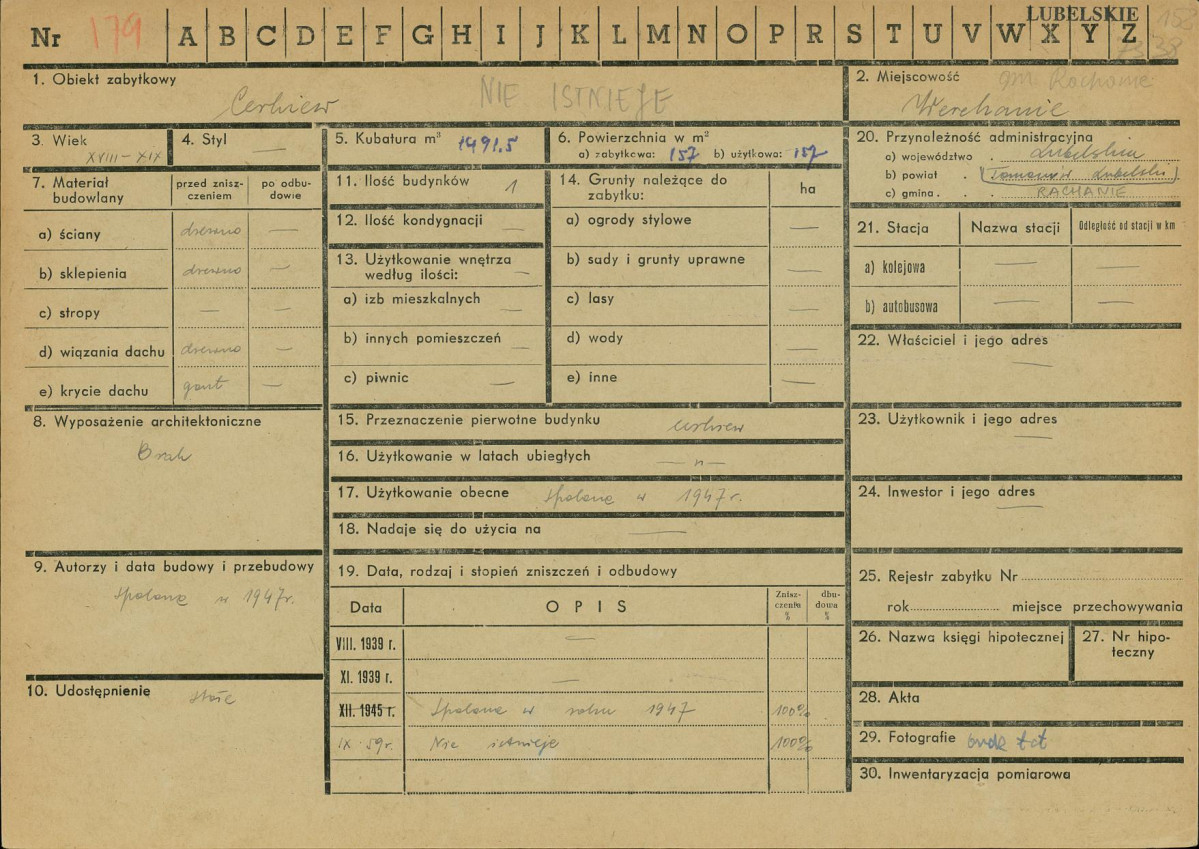 LUBELSKIE 158
Nr 179 A B C D E F G H I J K L M N O P R S T U V W X Y Z
38
1. Obiekt zabytkowy
Cerkiew NIE ISTNIEJE
2. Miejscowość gm. Rachanie
Werchanie
3. Wiek
XVIII–XIX
4. Styl —
5. Kubatura m³ 1491.5
6. Powierzchnia w m²
a) zabytkowa: 157 b) użytkowa: 157
20. Przynależność administracyjna
a) województwo . Lubelskie
b) powiat . (Tomaszów Lubelski)
c) gmina . RACHANIE
7. Materiał budowlany
przed znisz-
czeniem
po odbu-
dowie
a) ściany drewno —
b) sklepienia drewno —
c) stropy — —
d) wiązania dachu drewno —
e) krycie dachu gont —
11. Ilość budynków 1
12. Ilość kondygnacji —
13. Użytkowanie wnętrza
według ilości: —
a) izb mieszkalnych —
b) innych pomieszczeń —
c) piwnic —
14. Grunty należące do
zabytku:
ha
a) ogrody stylowe —
b) sady i grunty uprawne —
c) lasy —
d) wody —
e) inne —
21. Stacja Nazwa stacji Odległość od stacji w km
a) kolejowa — —
b) autobusowa — —
22. Właściciel i jego adres
—
8. Wyposażenie architektoniczne
Brak
15. Przeznaczenie pierwotne budynku cerkiew
16. Użytkowanie w latach ubiegłych — „ —
17. Użytkowanie obecne Spalona w 1947 r.
18. Nadaje się do użycia na —
23. Użytkownik i jego adres
—
24. Inwestor i jego adres
—
9. Autorzy i data budowy i przebudowy
Spalona w 1947r.
10. Udostępnienie
19. Data, rodzaj i stopień zniszczeń i odbudowy
Data OPIS
Znisz-
czenia
%
dbu-
dowa
%
VIII. 1939 r. —
XI. 1939 r. —
XII. 1945 r. Spalona w roku 1947 100%
IX 59r. Nie istnieje 100%
25. Rejestr zabytku Nr
rok miejsce przechowywania
26. Nazwa księgi hipotecznej
27. Nr hipo-
teczny
28. Akta
29. Fotografie brak fot
30. Inwentaryzacja pomiarowa